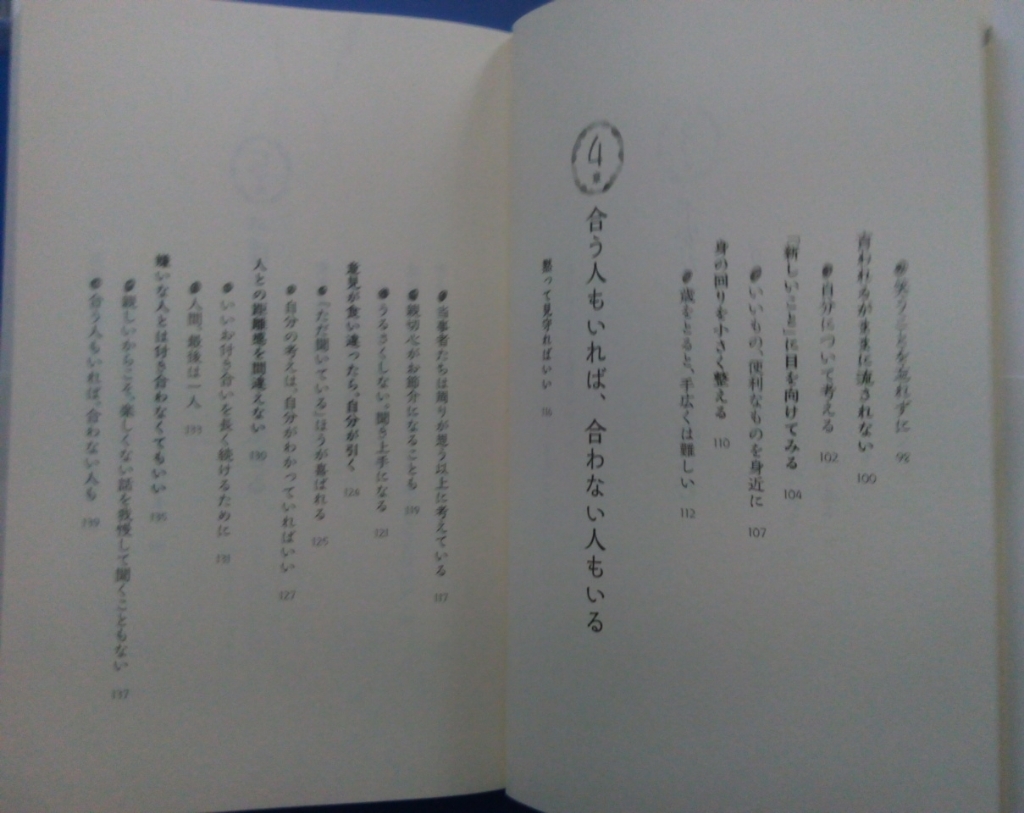 笑うことを忘れずに 98
言われるがままに流されない 100
自分について考える 102
「新しいこと」に目を向けてみる 104
いいもの、便利なものを身近に 107
身の回りを小さく整える 110
歳をとると、手広くは難しい 112
4章 合う人もいれば、合わない人もいる
黙って見守ればいい 116
当事者たちは周りが思う以上に考えている 117
親切心がお節介になることも 119
うるさくしない。聞き上手になる 121
意見が食い違ったら、自分が引く 124
「ただ聞いている」ほうが喜ばれる 125
自分の考えは、自分がわかっていればいい 127
人との距離感を間違えない 130
いいお付き合いを長く続けるために 131
人間、最後は一人 133
嫌いな人とは付き合わなくてもいい 135
親しいからこそ、楽しくない話を我慢して聞くこともない 137
合う人もいれば、合わない人も 139